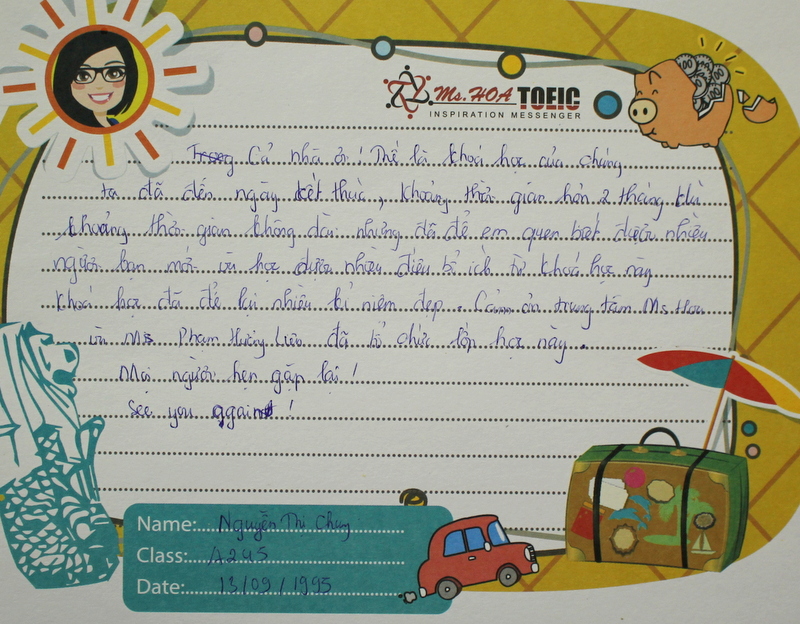 Ms. HOA TOEIC
INSPIRATION MESSENGER
Cả nhà ơi! Thế là khoá học của chúng
ta đã đến ngày kết thúc, khoảng thời gian hơn 2 tháng
khoảng thời gian không dài nhưng đã để em quen biết được nhiều
người bạn mới và học được nhiều điều bổ ích từ khoá học này
khoá học đã để lại nhiều kỉ niệm đẹp. Cảm ơn trung tâm Ms Hoa
và Ms Phạm Hương Lưu đã tổ chức lớp học này.
Mọi người hẹn gặp lại!
See you again!
Name: Nguyễn Thị Chung
Class: A24S
Date: 13/09/1995